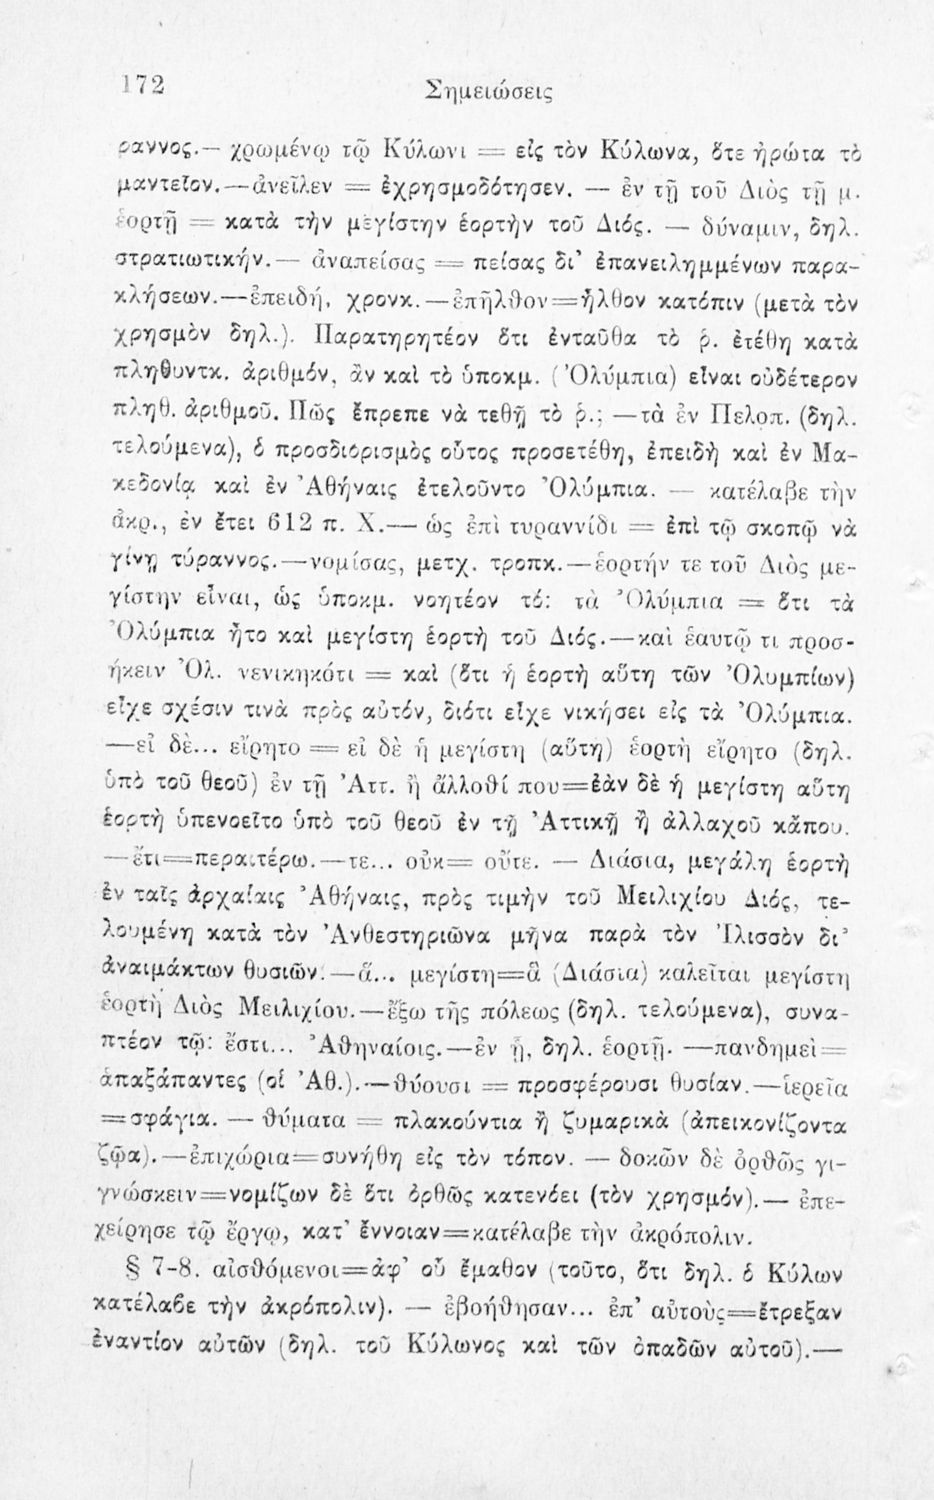 172 Σημειώσεις
ραννος.— χρωμένῳ τῷ Κύλωνι = εἰς τὸν Κύλωνα, ὅτε ἠρώτα τὸ
μαντεῖον.—ἀνεῖλεν = ἐχρησμοδότησεν. — ἐν τῇ τοῦ Διὸς τῇ μ.
ἑορτῇ = κατὰ τὴν μεγίστην ἑορτὴν τοῦ Διός. — δύναμιν, δηλ.
στρατιωτικήν.— ἀναπείσας = πείσας δι᾽ ἐπανειλημμένων παρα-
κλήσεων.—ἐπειδή, χρονκ.—ἐπῆλθον=ἦλθον κατόπιν (μετὰ τὸν
χρησμὸν δηλ.). Παρατηρητέον ὅτι ἐνταῦθα τὸ ῥ. ἐτέθη κατὰ
πληθυντκ. ἀριθμόν, ἂν καὶ τὸ ὑποκμ. (Ὀλύμπια) εἶναι οὐδέτερον
πληθ. ἀριθμοῦ. Πῶς ἔπρεπε νὰ τεθῇ τὸ ῥ.; —τὰ ἐν Πελοπ. (δηλ.
τελούμενα), ὁ προσδιορισμὸς οὗτος προσετέθη, ἐπειδὴ καὶ ἐν Μα-
κεδονίᾳ καὶ ἐν Ἀθήναις ἐτελοῦντο Ὀλύμπια. — κατέλαβε τὴν
ἀκρ., ἐν ἔτει 612 π. Χ.— ὡς ἐπὶ τυραννίδι = ἐπὶ τῷ σκοπῷ νὰ
γίνῃ τύραννος.—νομίσας, μετχ. τροπκ.—ἑορτήν τε τοῦ Διὸς με-
γίστην εἶναι, ὡς ὑποκμ. νοητέον τό: τὰ Ὀλύμπια = ὅτι τὰ
Ὀλύμπια ἦτο καὶ μεγίστη ἑορτὴ τοῦ Διός.—καὶ ἑαυτῷ τι προσ-
ήκειν Ὀλ. νενικηκότι = καὶ (ὅτι ἡ ἑορτὴ αὕτη τῶν Ὀλυμπίων)
εἶχε σχέσιν τινὰ πρὸς αὐτόν, διότι εἶχε νικήσει εἰς τὰ Ὀλύμπια.
—εἰ δὲ... εἴρητο = εἰ δὲ ἡ μεγίστη (αὕτη) ἑορτὴ εἴρητο (δηλ.
ὑπὸ τοῦ θεοῦ) ἐν τῇ Ἀττ. ἢ ἄλλοθί που=ἐὰν δὲ ἡ μεγίστη αὕτη
ἑορτὴ ὑπενοεῖτο ὑπὸ τοῦ θεοῦ ἐν τῇ Ἀττικῇ ἢ ἀλλαχοῦ κἄπου.
—ἔτι=περαιτέρω.—τε... οὐκ= οὔτε. — Διάσια, μεγάλη ἑορτὴ
ἐν ταῖς ἀρχαίαις Ἀθήναις, πρὸς τιμὴν τοῦ Μειλιχίου Διός, τε-
λουμένη κατὰ τὸν Ἀνθεστηριῶνα μῆνα παρὰ τὸν Ἰλισσὸν δι᾽
ἀναιμάκτων θυσιῶν.—ἅ... μεγίστη=ἃ (Διάσια) καλεῖται μεγίστη
ἑορτὴ Διὸς Μειλιχίου.—ἔξω τῆς πόλεως (δηλ. τελούμενα), συνα-
πτέον τῷ: ἔστι... Ἀθηναίοις.—ἐν ᾗ, δηλ. ἑορτῇ. —πανδημεὶ=
ἁπαξάπαντες (οἱ Ἀθ.).—θύουσι = προσφέρουσι θυσίαν.—ἱερεῖα
=σφάγια. — θύματα = πλακούντια ἢ ζυμαρικὰ (ἀπεικονίζοντα
ζῷα).—ἐπιχώρια=συνήθη εἰς τὸν τόπον. — δοκῶν δὲ ὀρθῶς γι-
γνώσκειν=νομίζων δὲ ὅτι ὀρθῶς κατενόει (τὸν χρησμόν).— ἐπε-
χείρησε τῷ ἔργῳ, κατ᾽ ἔννοιαν=κατέλαβε τὴν ἀκρόπολιν.
§ 7-8. αἰσθόμενοι=ἀφ᾽ οὗ ἔμαθον (τοῦτο, ὅτι δηλ. ὁ Κύλων
κατέλαβε τὴν ἀκρόπολιν). — ἐβοήθησαν... ἐπ᾽ αὐτοὺς=ἔτρεξαν
ἐναντίον αὐτῶν (δηλ. τοῦ Κύλωνος καὶ τῶν ὀπαδῶν αὐτοῦ).—